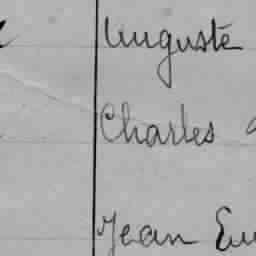 Auguste
Charles
Jean